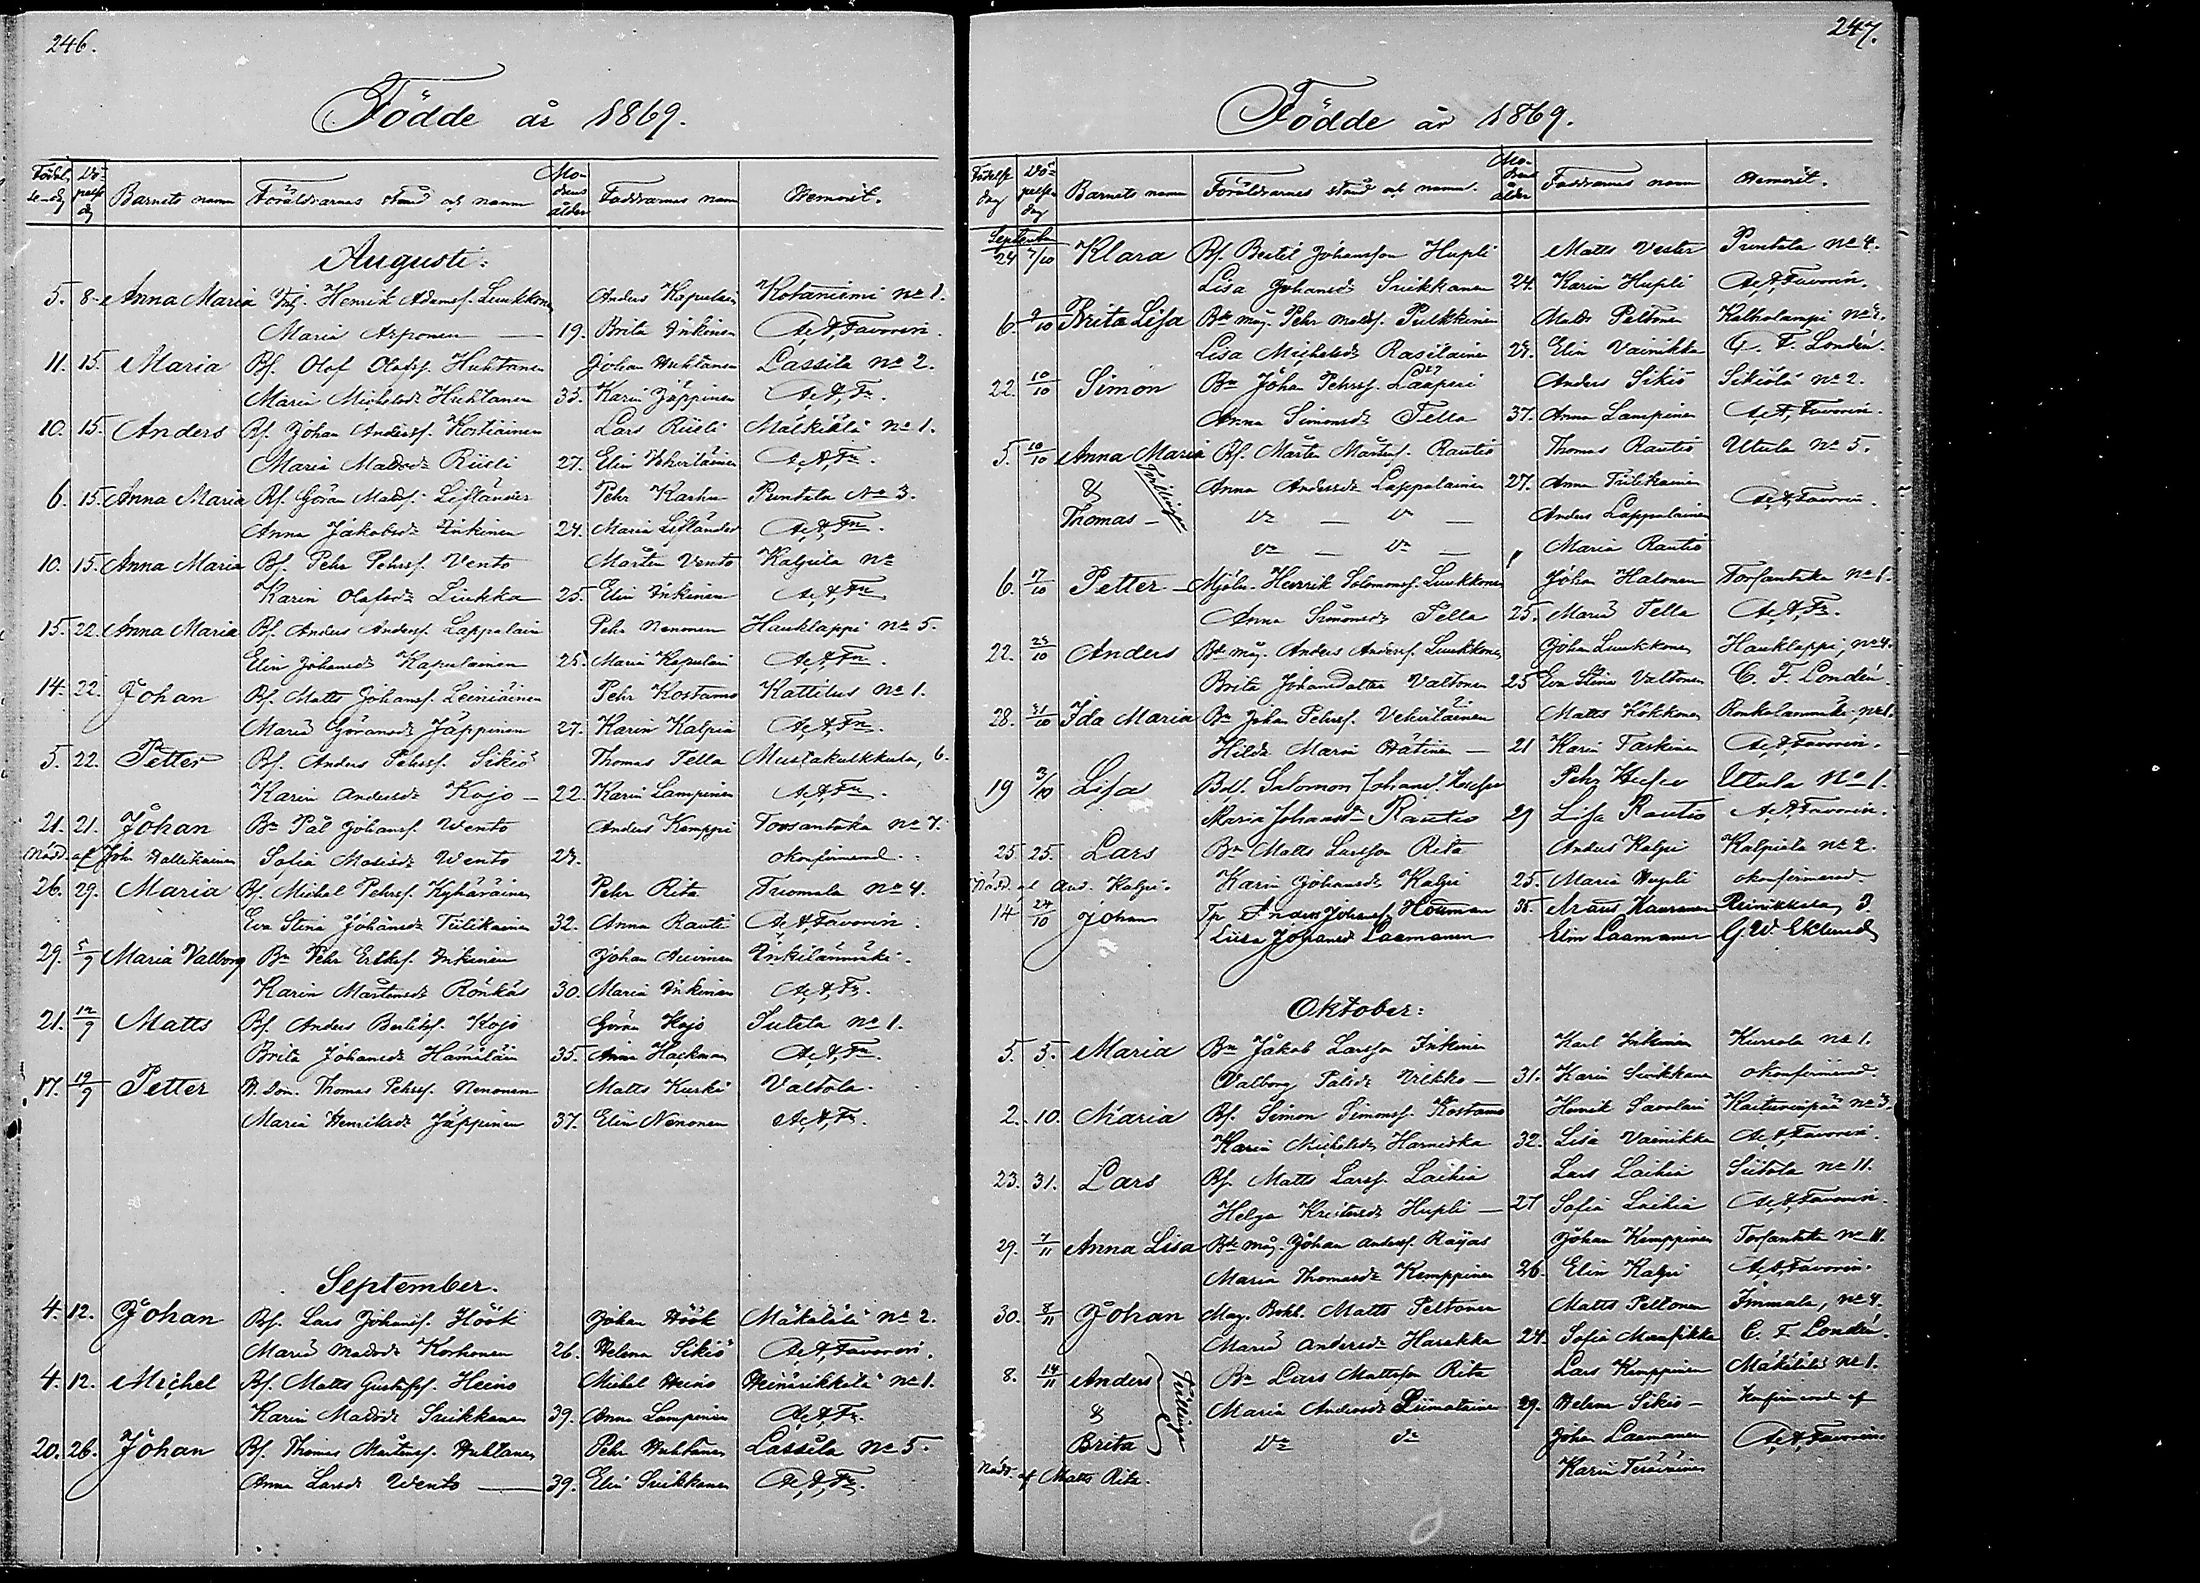 246.
Födde år 1869.
Födel- se-dg Dö- pelse dg Barnets namn Föräldrarnes stånd och namn Mo- drens ålder Faddrarnes namn Hemort.
Augusti:
5. 8. Anna Maria Henrik Adamsf. Luukkonen Anders Kapulain Kotaniemi No 1.
Maria Arponen 19. Brita Inkinen A. A. Favorin.
11. 15. Maria Bf. Olof Olofsf. Huhtanen Johan Huhtanen Lassila No 2.
Maria Michelsdr Huhtanen 33. Karin Jäppinen A. A. Fn.
10. 15. Anders Bf. Johan Andersf. Kostiainen Lars Riisli Mälkiälä No 1.
Maria Madsdr Riisli 27. Elin A. A. Fn.
6. 15. Anna Maria Bf. Göran Madsf. Lifländer Pehr Karhu Puntala No 3.
Anna Jakobsdr Inkinen 24. Maria Lifländer A. A. Fn.
10. 15. Anna Maria Bf. Pehr Pehrsf. Vento Mårten Vento Kalpiala No
Karin Olofsdr Liukka 25. Elin Inkinen A. A. Fn.
15. 22. Anna Maria Bf. Anders Andersf. Lappalain Pehr Nenonen Hauklappi No 5.
Elin Johansdr Kapulainen 25. Maria Kapulain A. A. Fn.
14. 22. Johan Bf. Matts Johansf. Leiniäinen Pehr Kostamo Kattilus No 1.
Maria Göransdr Jäppinen 27. Karin Kalpia A. A. Fn.
5. 22. Petter Bf. Anders Pehrsf. Sikiö Thomas Tella Mustakulkkula, 6.
Karin Andersdr Kojo 22. Karin Lampinen A. A. Fn.
21. 21. Johan Bn Pål Johansf. Wento Anders Kemppi Torsantaka No 7.
Nödd. af Joh. Hallikainen Sofia Matsdr Wento 27. okonfirmerad.
26. 29. Maria Bf. Michel Pehrsf. Kyhäräinen Pehr Rita Tuomala No 4.
Eva Stina Johansdr Tiilikainen 32. Anna Rautio A. A. Favorin.
29. 5/9 Maria Valborg Bn Pehr Eriksf. Inkinen Johan Arvinen Inkilänmäki.
Karin Mårtensdr Rönkäs 30. Maria Inkinen A. A. Fn.
21. 12/9 Matts Bf. Anders Bertilsf. Kojo Göran Kojo Suttela No 1.
Brita Johansdr Hämäläin 35. Anna Hackman A. A. Fn.
17. 19/9 Petter Thomas Pehrsf. Nenonen Matts Kurki Valtola.
Maria Henriksdr Jäppinen 37. Elin Nenonen A. A. Fn.
September.
4. 12. Johan Bf. Lars Johansf. Höök Johan Höök Mäkälälä No 2.
Maria Madsdr Korhonen 26. Helena Sikiö A. A. Favorin.
4. 12. Michel Bf. Matts Gustafsf. Heino Michel Heino Heinikkälä No 1.
Karin Madsdr Suikkanen 39. Anna Lampinen A. A. Fn.
20. 26. Johan Bf. Thomas Mårtensf. Huhtanen Pehr Huhtanen Lassila No 5.
Anna Larsdr Wento 39. Elin Suikkanen A. A. Fn.
247.
Födde år 1869.
Födelse dag Dö- pelse dag Barnets namn Föräldrarnes stånd och namn. Mo- drens ålder Faddrarnes namn Hemort.
September
24 7/10 Klara Bf. Bertil Johansson Hupli Matts Vester Puntala No 4.
Lisa Johansdr Suikkanen 24. Karin Hupli A. A. Favorin.
6. 9/10 Brita Lisa Bde måg. Pehr Madsf. Pulkkinen Matts Peltonen Kelkolampi No
Lisa Michelsdr Rasilainen Elin Vainikka C. F. Londén.
22. 10/10 Simon Bn Johan Pehrsf. Laaperi Anders Sikiö Sikiölä No 2.
Anna Simonsdr Tella 37. Anna Lampinen A. A. Favorin.
5. 10/10 Anna Maria Bf. Mårten Mårtensf. Rautio Thomas Rautio Utula No 5.
& Tvillingar Anna Andersdr Lappalainen 27. Anna Tiilikainen A. A. Favorin.
Thomas Do Do Anders Lappalainen
Do Do Maria Rautio
6. 17/10 Petter Mjöln. Henrik Solomonsf. Luukkonen Johan Halonen Torsantaka No 1.
Anna Simonsdr Tella 25. Maria Tella A. A. Fn.
22. 25/10 Anders Bde måg. Anders Andersf. Luukkonen Johan Luukkonen Hauklappi, No 4.
Brita Johansdotter Valtonen 25 Eva Stina Valtonen C. F. Londén.
28. 31/10 Ida Maria Bn Johan Pehrsf. Vekerläinen Matts Kokkonen Ronkolanmäki, No 1.
Hilda Maria Hätinen 21 Karin Taskinen A. A. Favorin.
19 3/10 Lisa Bdl. Salomon Johansf. Pehr Utula No 1.
Maria Johansdr Rautio 29 Lisa Rautio A. A. Favorin.
25 25. Lars Bn Matts Larsson Rita Anders Kalpi Kalpiala No 2.
Nödd. af And. Kalpi. Karin Johansdr Kalpi 25. Maria Hupli okonfirmerad.
14 24/10 Johan Tp Anders Johansf. Houtman 35. Kauranen Reinikkala, 3
Liisa Johansd Laamanen Elin Laamanen G. W. Eklund
Oktober:
5. 5. Maria Bn Jakob Larsson Inkinen Karl Inkinen Kurvola No 1.
Valborg Pålsdr Vilkko 31. Karin Suikkanen okonfirmerad.
2. 10. Maria Bf. Simon Simonsf. Kostamo Henrik Savolain Kaiturinpää No 3.
Karin Michelsdr Harniska 32. Lisa Vainikka A. A. Favorin.
23. 31. Lars Bf. Matts Larsf. Laihia Lars Laihia Siitola No 11.
Helga Kristersdr Hupli 27 Sofia Laihia A. A. Favorin.
29. 7/11 Anna Lisa Bde måg. Johan Andersf. Raijas Johan Kemppinen Torsantaka No 11.
Maria Thomasdr Kemppinen 26. Elin Kalpi A. A. Favorin.
30. 8/11 Johan Mag. Bokh. Matts Peltonen Matts Peltonen Immala, No 4.
Maria Andersdr Harakka 24. Sofia C. F. Londén.
8. 14/11 Anders Bn Lars Mattsson Rita Lars Kemppinen Mäkälälä No 1.
& Tvillingar Maria Andersdr Liimatainen 29. Helena Sikiö Konfirmerade af
Brita Do Do Johan Laamanen A. A. Favorin.
Nödd. af Matts Rita. Karin Teräväinen